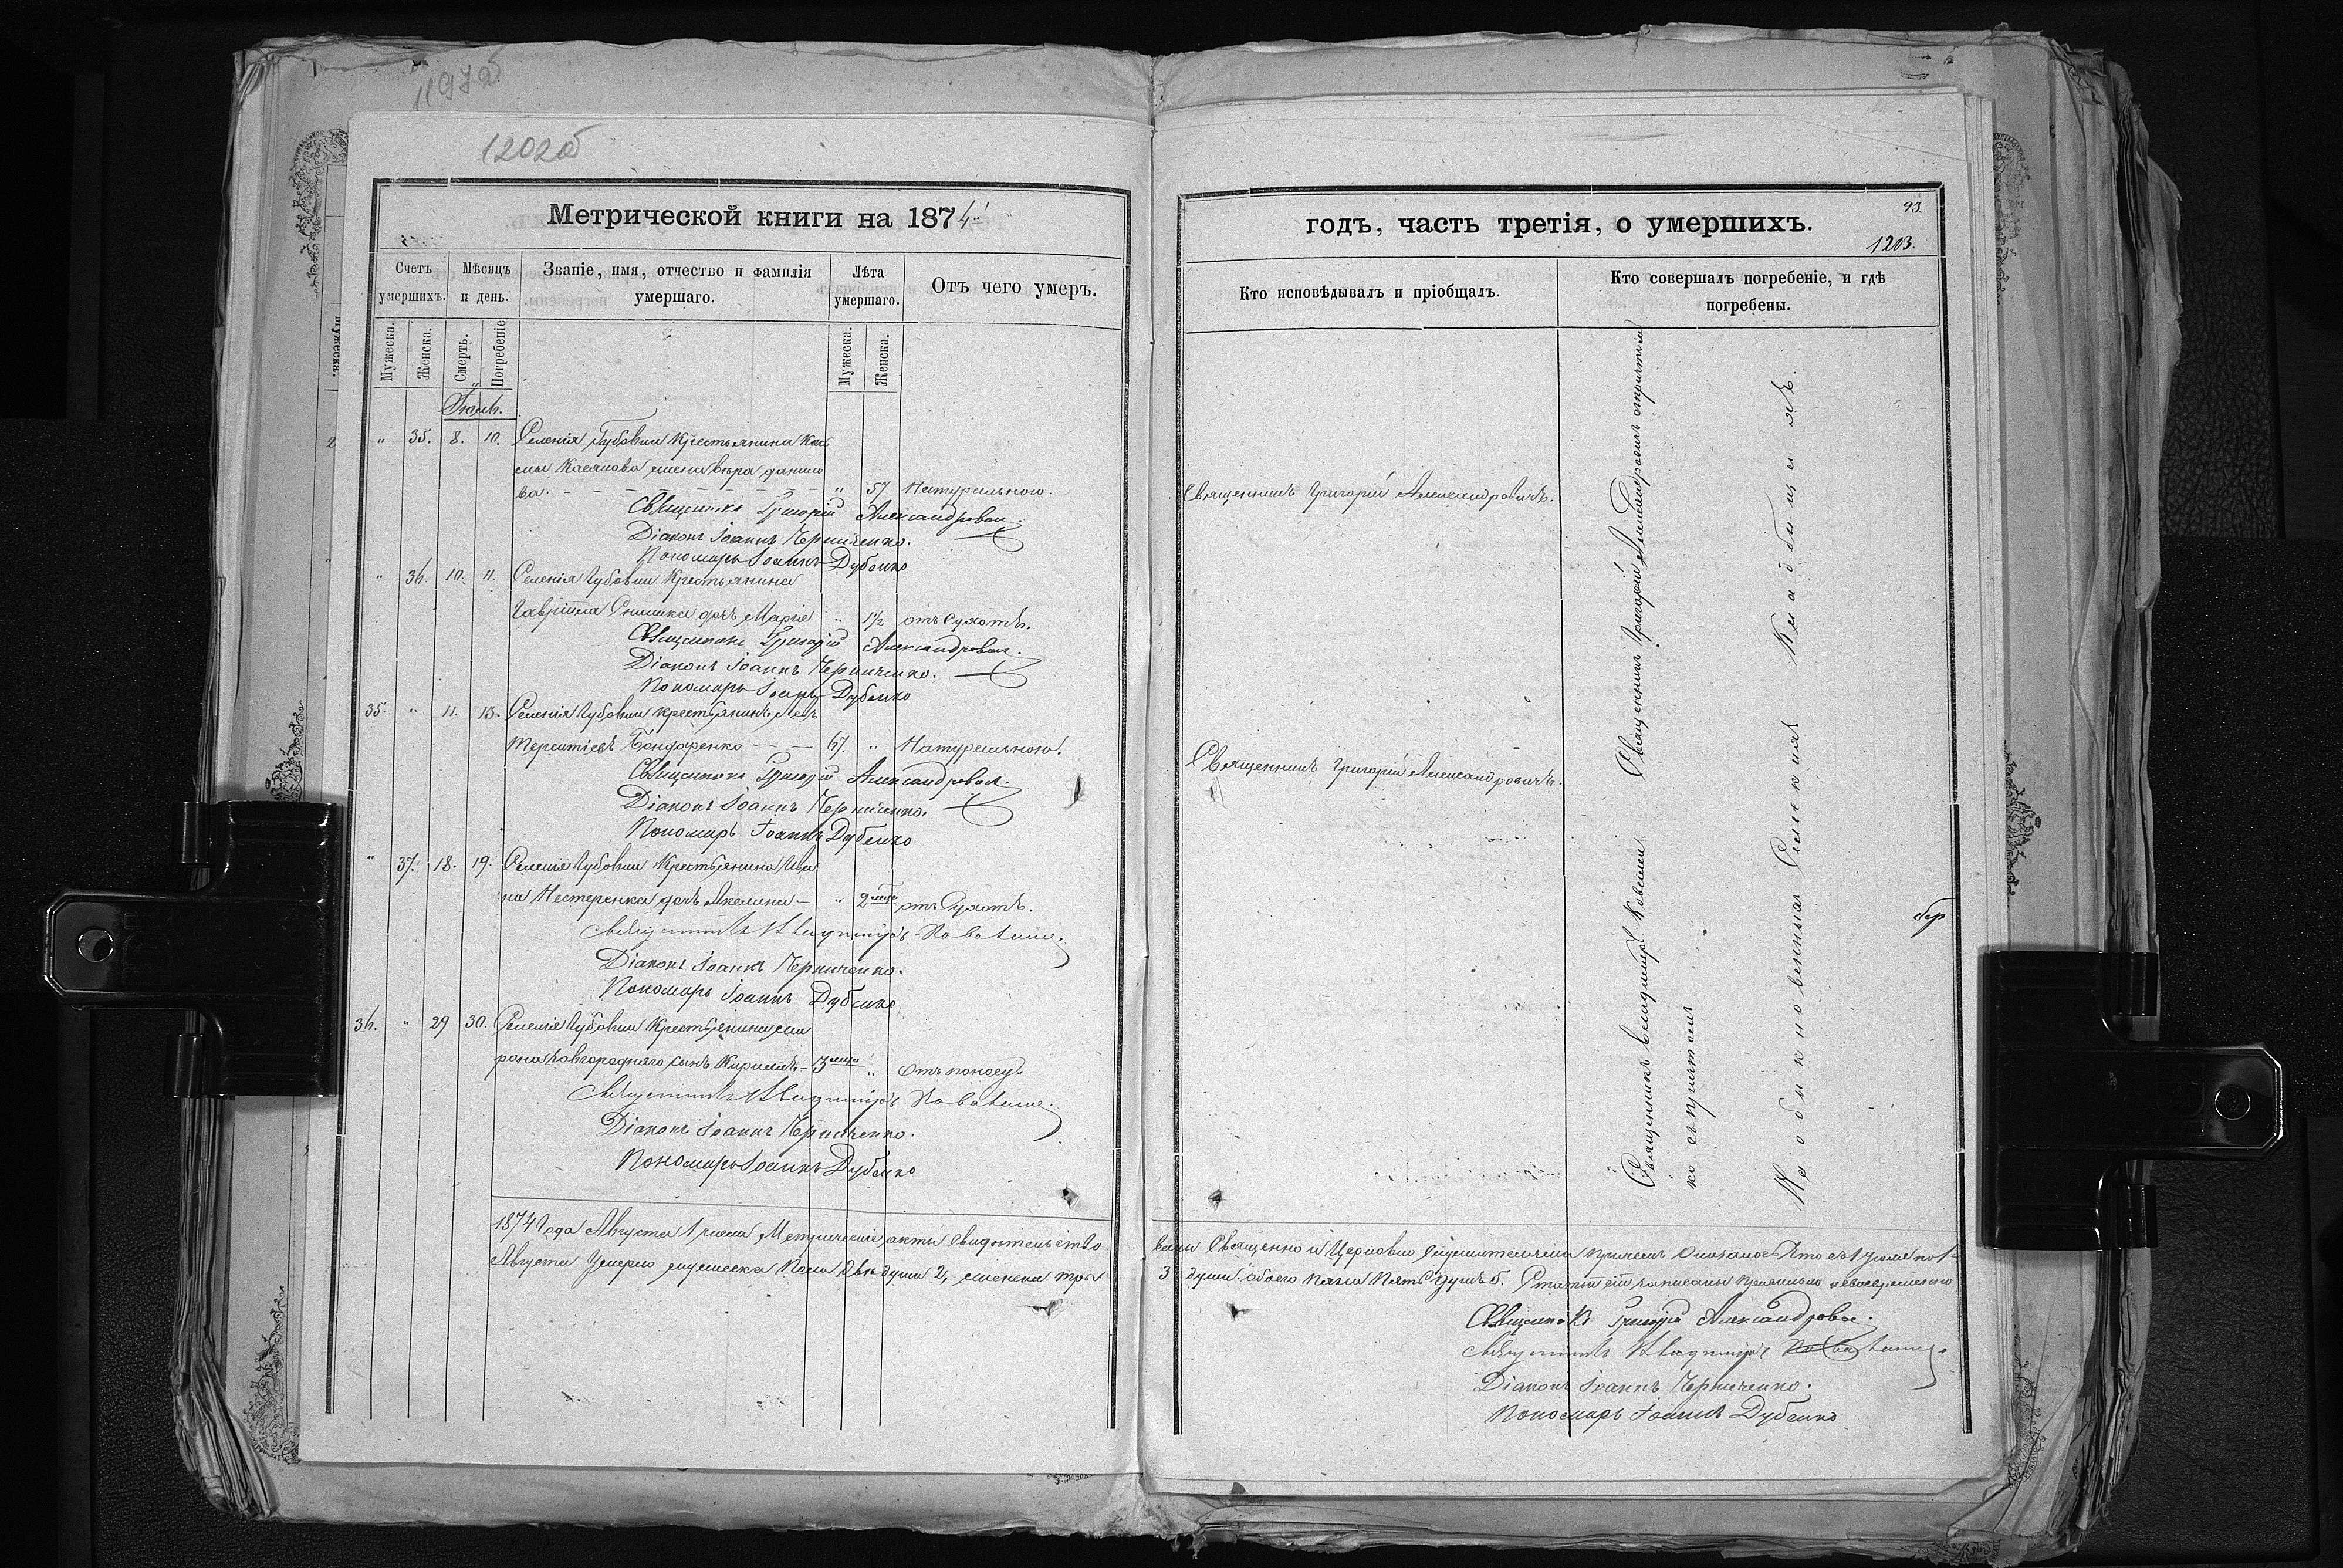 1197об
1202об
Метрической книги на 1874
Счетъ умершихъ.
Мѣсяцъ и день.
Званіе, имя, отчество и фамилія умершаго.
Лѣта умершаго.
Отъ чего умеръ.
Мужеска.
Женска.
Смерть.
Погребеніе
Мужеска.
Женска.
Іюль.
" 35. 8. 10. Селенія Губовки Крестьянина Кось
мы жена Вѣра Данило
ва. " 57 Натуральною.
Священникъ Григорій Александровъ.
Діаконъ Іоаннъ Черниченко.
Пономарь Іоаннъ Дубенко
" 36. 10. 11. Селенія Губовки Крестьянина
Гавріила дочь Марія " 1½ отъ Сухотъ.
Священникъ Григорій Александровъ.
Діаконъ Іоаннъ Черниченко.
Пономарь Іоаннъ Дубенко
35. " 11. 13. Селенія Губовки крестьянинъ
Терентіевъ Бондаренко 67. " Натуральною.
Священникъ Григорій Александровъ.
Діаконъ Іоаннъ Черниченко.
Пономарь Іоаннъ Дубенко
" 37. 18. 19. Селенія Губовки Крестьянина Ива
на Нестеренка дочь Акелина " 2 отъ Сухотъ.
Священникъ Владиміръ
Діаконъ Іоаннъ Черниченко.
Пономарь Іоаннъ Дубенко
36. " 29 30. Селенія Губовки Крестьянина Ми
рона сынъ Кирилъ 3 " Отъ поносу.
Священникъ Владиміръ
Діаконъ Іоаннъ Черниченко.
Пономарь Іоаннъ Дубенко
1874 Года Августа 1 числа Метрическіе акты Свидѣтельство
Августа Умерло мужеска Пола двѣ души 2, женска три
годъ, часть третія, о умершихъ.
93.
1203.
Кто исповѣдывалъ и пріобщалъ.
Кто совершалъ погребеніе, и гдѣ погребены.
Священникъ Григорій Александровичъ.
Священникъ Григорій Александровичъ.
Священникъ Григорій Александровичъ съ причтомъ
Священникъ Владиміръ
ко съ причтомъ
На обыкновенномъ Сельскомъ Кладбищѣ
вали Священно и Церковно Служители Причетъ Оказалось Что съ 1 Іюля по 1
3 души обоего Пола Пять душъ 5. Статьи записаны Правильно
Священникъ Григорій Александровъ.
Священникъ Владиміръ
Діаконъ Іоаннъ Черниченко.
Пономарь Іоаннъ Дубенко